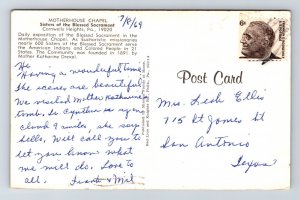 MOTHERHOUSE CHAPEL
Sisters of the Blessed Sacrament
Cornwells Heights, Pa., 19020
Daily exposition of the Blessed Sacrament in the
Motherhouse Chapel. As Eucharistic missionaries
nearly 600 Sisters of the Blessed Sacrament serve
the American Indians and Colored People in 21
States. The Community was founded in 1891 by
Mother Katharine Drexel.
7/8/69
Hi -
Having a wonderful time
The scenes are beautiful
We visited Mother Katharine's
tomb. So Cynthia is
climb
hills. Will call you to
let you know what
we will do. Love to
all.
6¢
Post Card
Mrs. Leoh Ellis
715 Kt Jones St
San Antonio
Texas